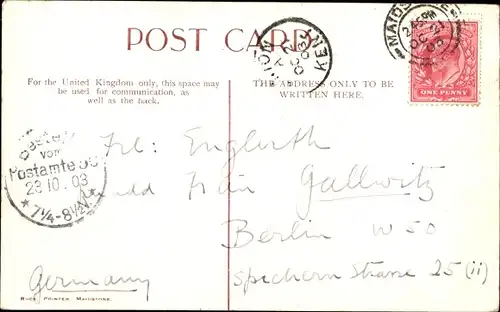 POST CARD
For the United Kingdom only, this space may
be used for communication, as
well as the back.
THE ADDRESS ONLY TO BE
WRITTEN HERE.
MAIDS
2.45 PM
OC 21
03
ONE PENNY
KEN
Bestellt
vom
Postamte 50
23.10.03
* 7¼-8½V. *
Frl: Englerth
Frau Gallwitz
Berlin W 50
Germany
Spichern Strasse 25 (ii)
PRINTER, MAIDSTONE.